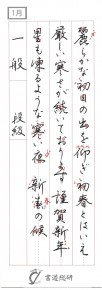 1月
麗らかな初日の出を仰ぎ初春とはいえ
厳しい寒さが続いております 謹賀新年
星も凍るような寒い夜 新春の候
一般 段級
書道総研